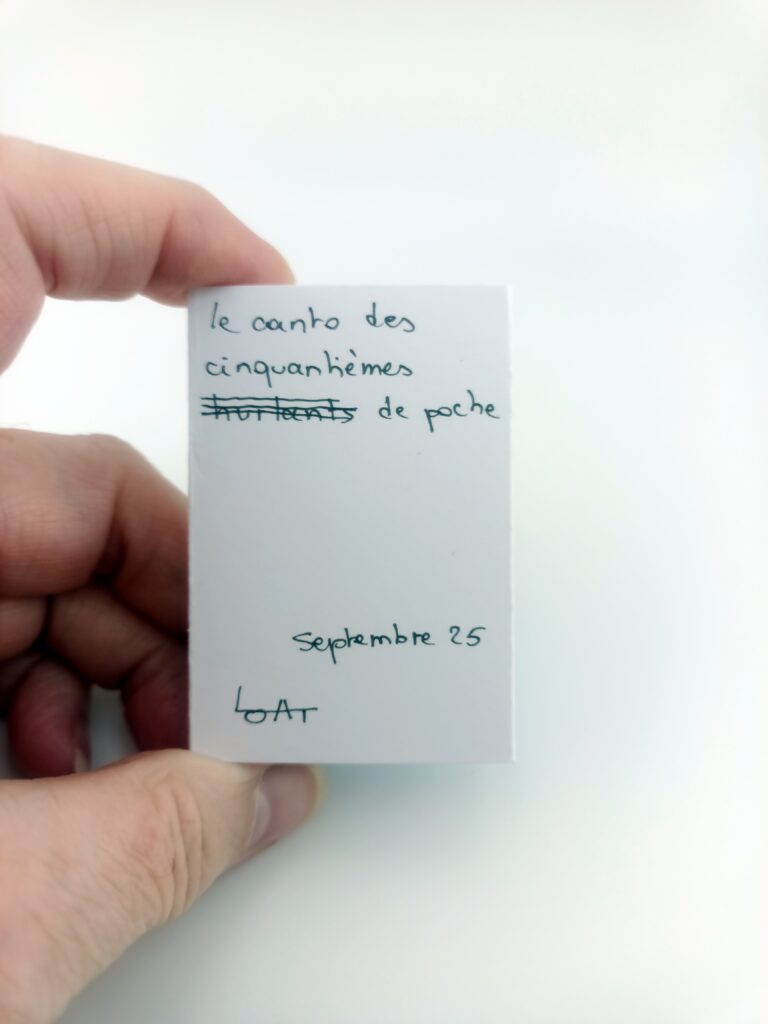 le canto des
cinquantièmes
hurlants de poche
septembre 25
LOAT